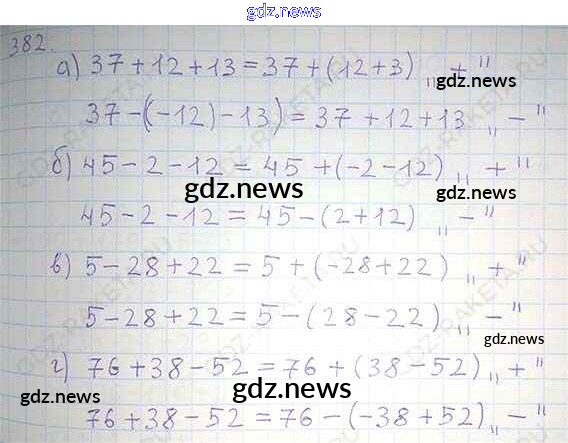 gdz.news
382.
а) 37 + 12 + 13 = 37 + (12 + 3) „ + "
gdz.news
37 - (-12) - 13) = 37 + 12 + 13 „ - "
б) 45 - 2 - 12 = 45 + (-2 - 12) „ + "
gdz.news
45 - 2 - 12 = 45 - (2 + 12) „ - "
в) 5 - 28 + 22 = 5 + (-28 + 22) „ + "
5 - 28 + 22 = 5 - (28 - 22) „ - "
gdz.news
г) 76 + 38 - 52 = 76 + (38 - 52) „ + "
gdz.news gdz.news
76 + 38 - 52 = 76 - (-38 + 52) „ - "